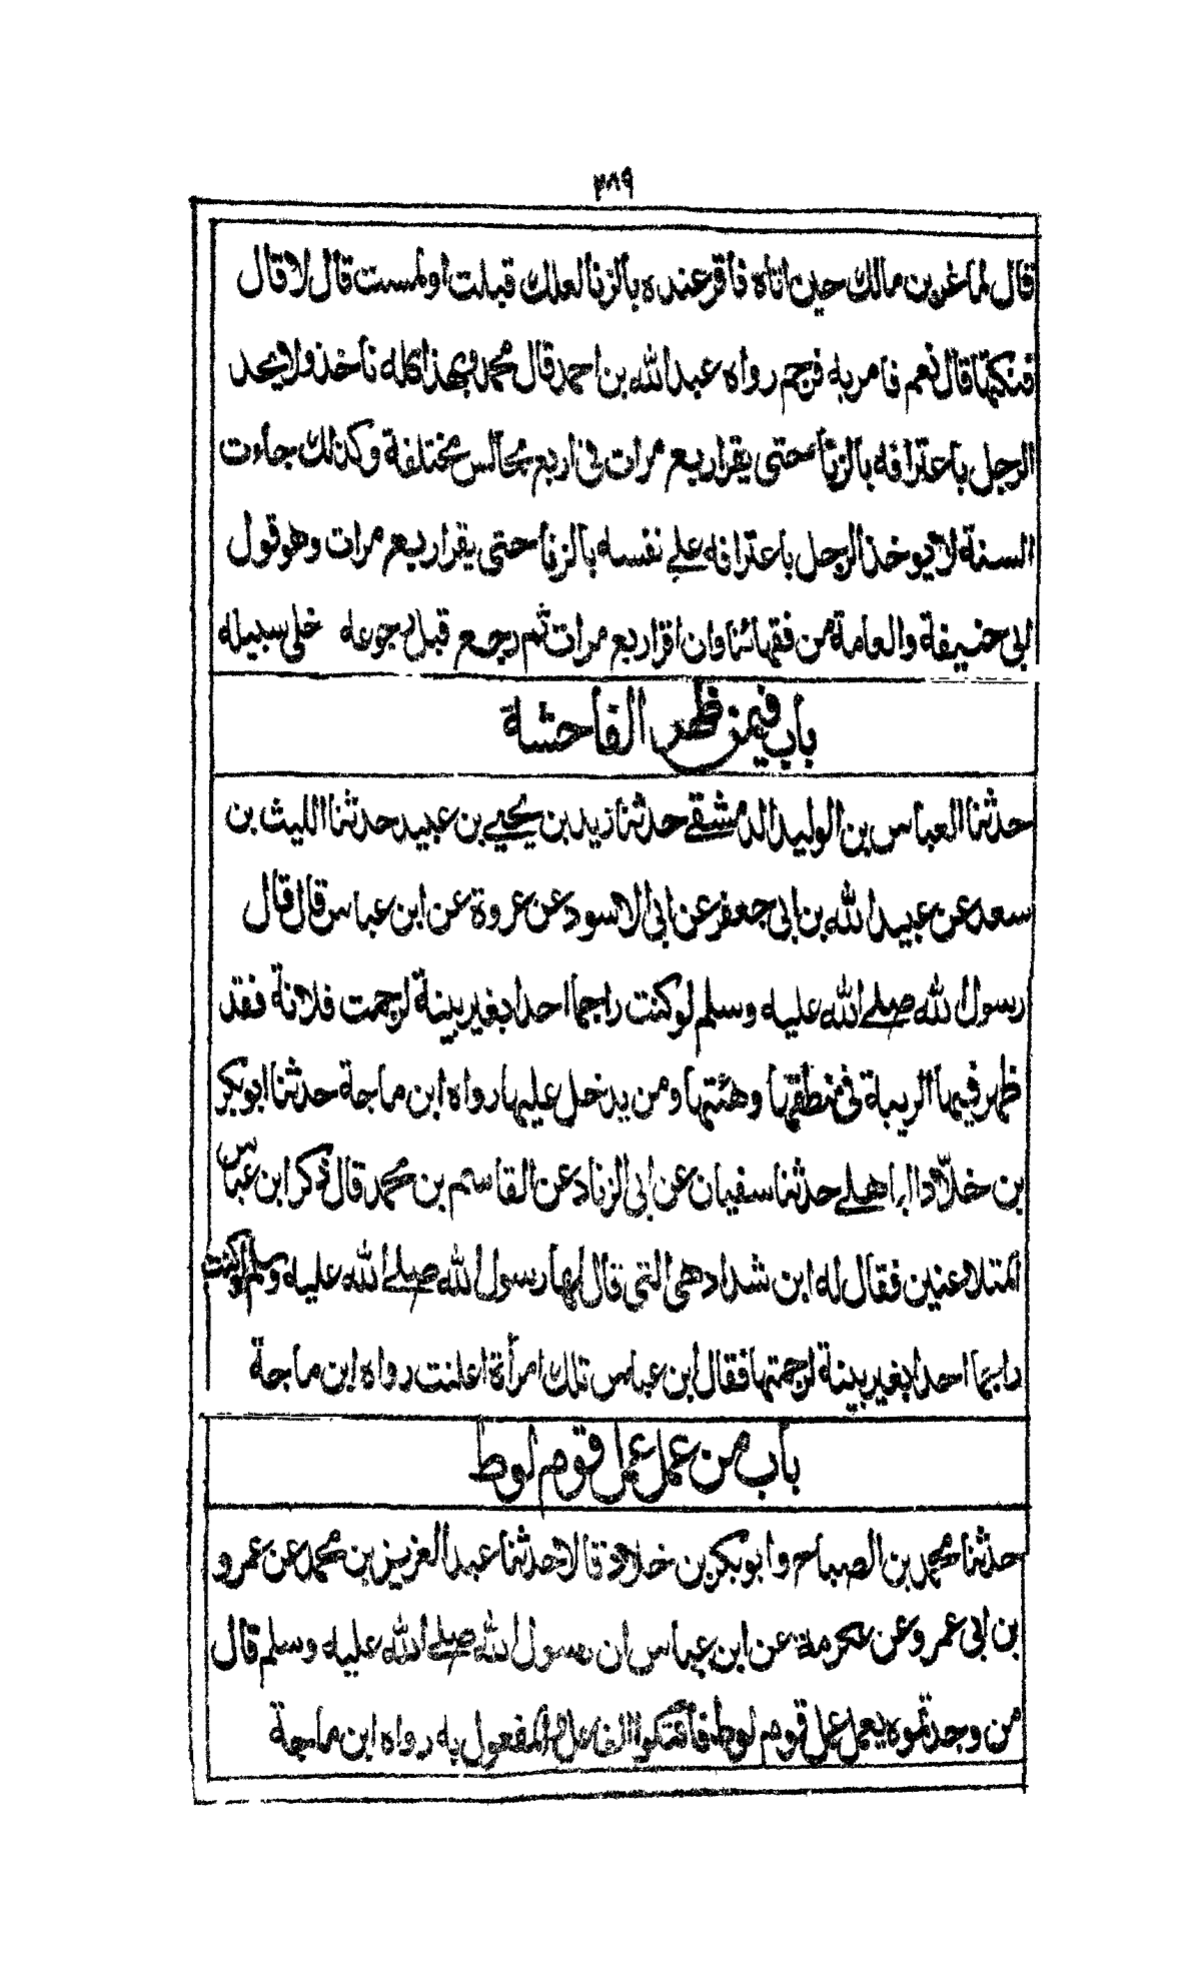 ٣٨٩
قال لماغربن مالك حين اتاه فاقر عنده بالزنا لعلك قبلت اولمست قال لا قال
فنكتها قال نعم فامر به فرجم رواه عبد الله بن احمد قال محمد وبهذا كله ناخذ ولا يحد
الرجل باعترافه بالزنا حتى يقر اربع مرات في اربع مجالس مختلفة وكذلك جاءت
السنة لا يوخذ الرجل باعترافه علے نفسه بالزنا حتى يقر اربع مرات وهو قول
ابى حنيفة والعامة من فقهائنا وان اقر اربع مرات ثم رجع قبل رجوعه خلى سبيله
باب فيمن ظهر الفاحشة
حدثنا العباس بن الوليد الدمشقے حدثنا زيد بن يحيے بن عبيد حدثنا الليث بن
سعد عن عبيد الله بن ابى جعفر عن ابى الاسود عن عروة عن ابن عباس قال قال
رسول الله صلے الله عليه وسلم لوكنت راجما احدا بغير بينة لرجمت فلانة فقد
ظهر فيها الريبة فى منطقها وهئتها ومن يدخل عليها رواه ابن ماجة حدثنا ابوبكر
بن خلّاد الباهلے حدثنا سفيان عن ابى الزناد عن القاسم بن محمد قال ذكر ابن عباس
المتلاعنين فقال له ابن شداد هى التى قال لها رسول الله صلے الله عليه وسلم لوكنت
راجما احدا بغير بينة لرجمتها فقال ابن عباس تلك امرأة اعلنت رواه ابن ماجة
باب من عمل عمل قوم لوط
حدثنا محمد بن الصباح وابوبكر بن خلاد قالا حدثنا عبد العزيز بن محمد عن عمرو
بن ابى عمرو عن عكرمة عن ابن عباس ان رسول الله صلے الله عليه وسلم قال
من وجدتموه يعمل عمل قوم لوط فاقتلوا الفاعل والمفعول به رواه ابن ماجة